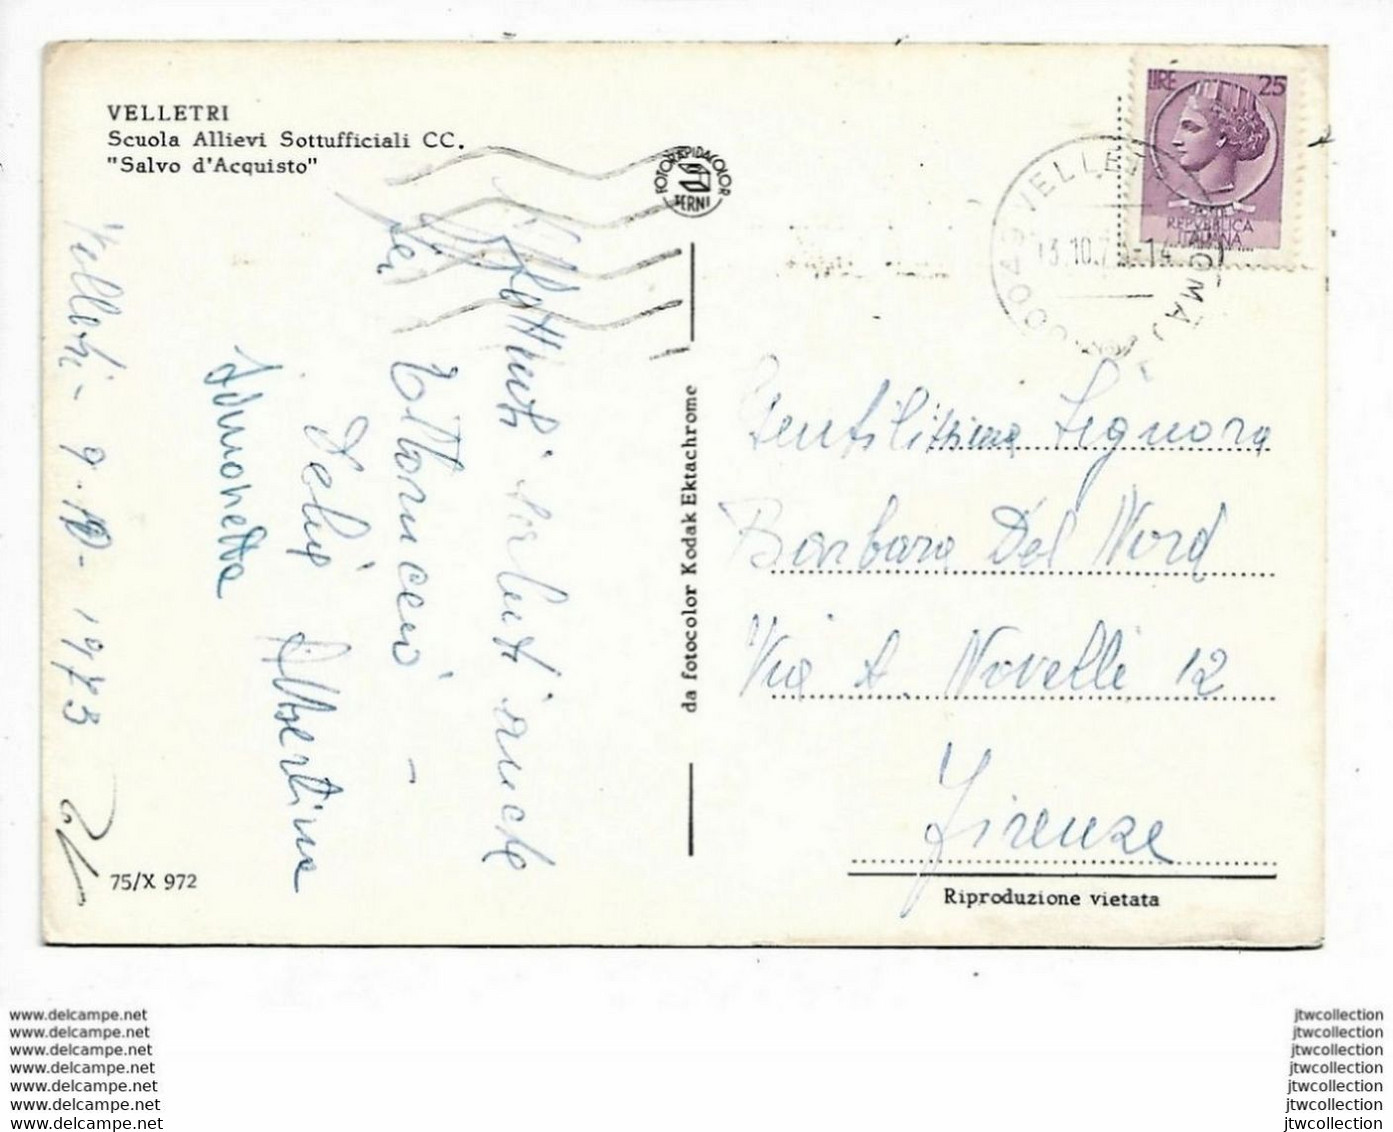 VELLETRI
Scuola Allievi Sottufficiali CC.
"Salvo d'Acquisto"
Velletri - 9.10.1973
saluti anche
Albertina
Simonetta
75/X 972
FOTORAPIDACOLOR
TERNI
da fotocolor Kodak Ektachrome
LIRE 25
REPVBBLICA
ITALIANA
00049 VELLETRI (ROMA)
13.10.7
Gentilissima Signora
Barbara Del Nord
Via A. Novelli 12
Firenze
Riproduzione vietata
www.delcampe.net
www.delcampe.net
www.delcampe.net
www.delcampe.net
www.delcampe.net
www.delcampe.net
www.delcampe.net
jtwcollection
jtwcollection
jtwcollection
jtwcollection
jtwcollection
jtwcollection
jtwcollection